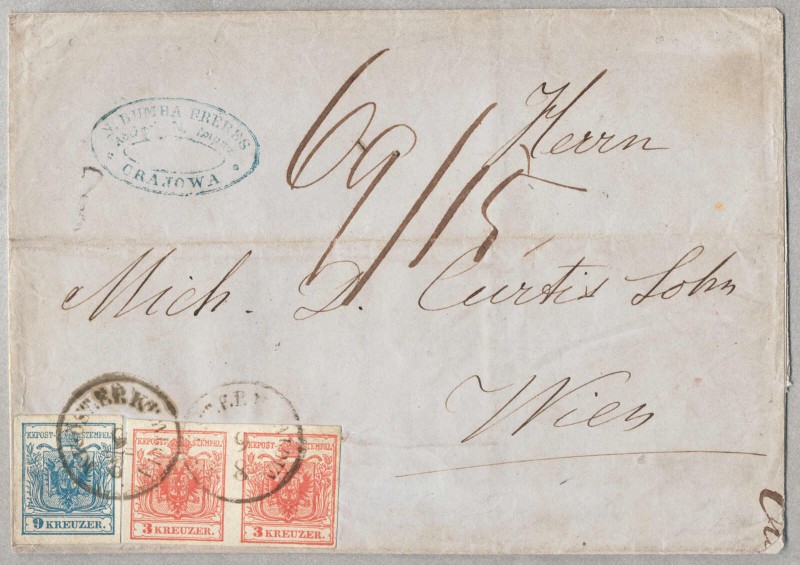 N. DUMBA FRÈRES
CRAJOWA
69/15
Herrn
Mich. D. Curtis Sohn
Wien
9
8
9
8
KKPOST-STEMPEL
9 KREUZER.
KKPOST-STEMPEL
3 KREUZER.
KKPOST-STEMPEL
3 KREUZER.